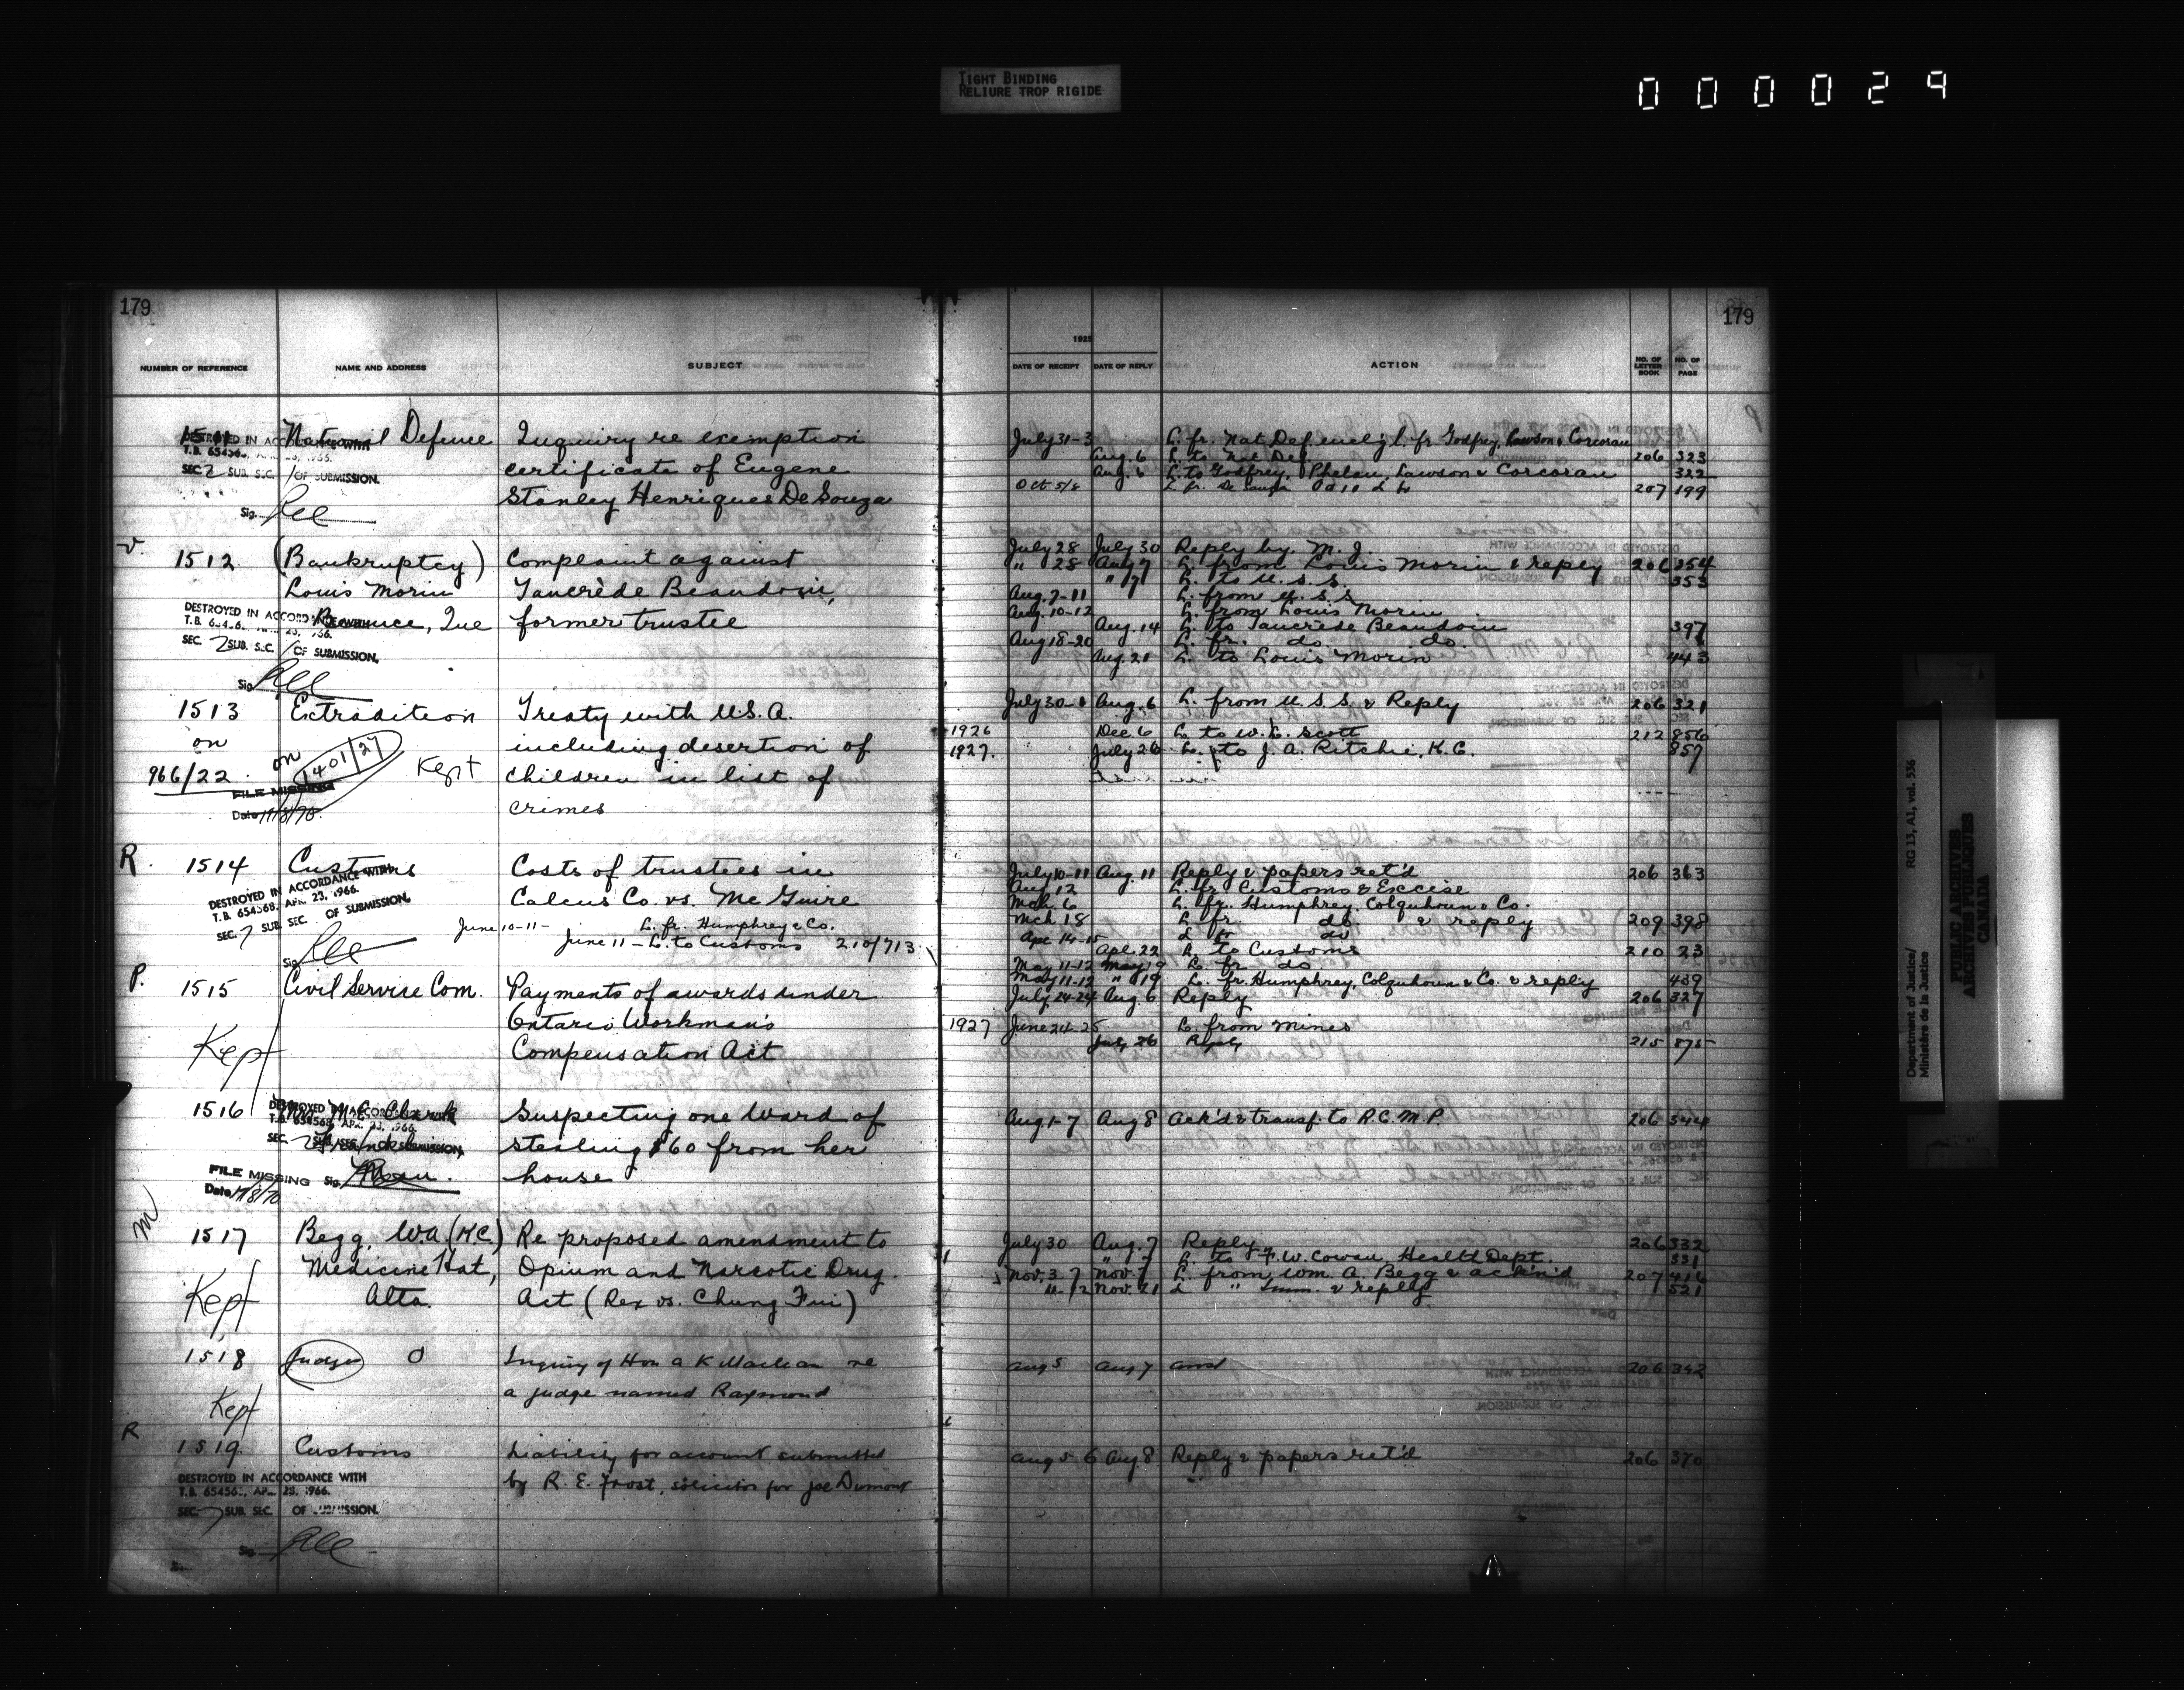 TIGHT BINDING
RELIURE TROP RIGIDE
000029
179
179
1925
NUMBER OF REFERENCE NAME AND ADDRESS SUBJECT DATE OF RECEIPT DATE OF REPLY ACTION NO. OF LETTER BOOK NO. OF PAGE
1511 National Defence Inquiry re exemption
certificate of Eugene
Stanley Henriques De Souza
DESTROYED IN ACCORDANCE WITH
SEC. 2 SUB. SEC. 1 OF SUBMISSION.
Sig.
July 31-3 L. fr. Nat. Def. encl'g l. fr Godfrey, Lawson & Corcoran
Aug. 6 L. to Nat. Def. 206 323
Aug. 6 L. to Godfrey, Phelan, Lawson & Corcoran 322
Oct 5/8 L. fr. De Souza 207 199
v. 1512 (Bankruptcy) Complaint against
Louis Morin Tancrède Beaudoin,
Beauce, Que former trustee
DESTROYED IN ACCORDANCE WITH
SEC. 7 SUB. SEC. 1 OF SUBMISSION.
Sig
July 28 July 30 Reply by M. J.
" 28 Aug 7 L. from Louis Morin & reply 206 354
" 7 L. to U. S. S. 353
Aug. 7-11 L. from U. S. S.
Aug. 10-12 L. from Louis Morin
Aug. 14 L. to Tancrède Beaudoin 397
Aug 18-20 L. fr. do. do.
Aug. 21 L. to Louis Morin 443
1513 Extradition Treaty with U.S.A.
on including desertion of
966/22 on 1401/27 Kept children in list of
crimes
FILE MISSING
Date 11/8/70
July 30-1 Aug. 6 L. from U. S. S. & Reply 206 321
1926 Dec. 6 L. to W. L. Scott 212 856
1927. July 26 L. to J. A. Ritchie, K.C. 857
R. 1514 Customs Costs of trustees in
Calcus Co. vs. McGuire
DESTROYED IN ACCORDANCE WITH
T.B. 654568, APR. 23, 1966.
SEC. 7 SUB. SEC. OF SUBMISSION.
Sig
June 10-11- L. fr. Humphrey & Co.
June 11 - L. to Customs 210/713
July 10-11 Aug. 11 Reply & papers ret'd 206 363
Aug 12 L. fr. Customs & Excise
Mch. 6 L. fr. Humphrey, Colquhoun & Co.
Mch 18 L. fr. do & reply 209 398
Apr 14-15 L fr do
Apl. 22 L. to Customs 210 23
May 11-12 May 19 L. fr. do
May 11-12 " 19 L. fr. Humphrey, Colquhoun & Co. & reply 439
P. 1515 Civil Service Com. Payments of awards under
Ontario Workman's
Compensation Act
Kept
July 24-24 Aug. 6 Reply 206 327
1927 June 24-25 L. from Mines
July 26 Reply 215 875
1516 Mrs. M. C. Clark Suspecting one Ward of
stealing $60 from her
house
FILE MISSING
Date 11/8/70
Aug 1-7 Aug 8 Ack'd & transf. to R.C.M.P. 206 344
M 1517 Begg, W.A. (K.C.) Re proposed amendment to
Medicine Hat, Opium and Narcotic Drug
Alta. Act (Rex vs. Chung Fui)
Kept
July 30 Aug. 7 Reply 206 332
" 7 L. to F. W. Cowan, Health Dept. 331
Nov. 3-7 Nov. 7 L. from Wm. A. Begg & ack'n'd 207 416
11-12 Nov. 21 L " & reply 521
1518 Judges O Inquiry of Hon A K Maclean re
a judge named Raymond
Kept
Aug 5 Aug 7 206 342
R 1519 Customs Liability for account submitted
by R. E. Frost, solicitor for Joe Dumont
DESTROYED IN ACCORDANCE WITH
SEC. 7 SUB. SEC. OF SUBMISSION.
Aug 5 6 Aug. 8 Reply & papers ret'd 206 370
Department of Justice/ RG 13, A1, vol. 536
Ministère de la Justice
PUBLIC ARCHIVES
ARCHIVES PUBLIQUES
CANADA